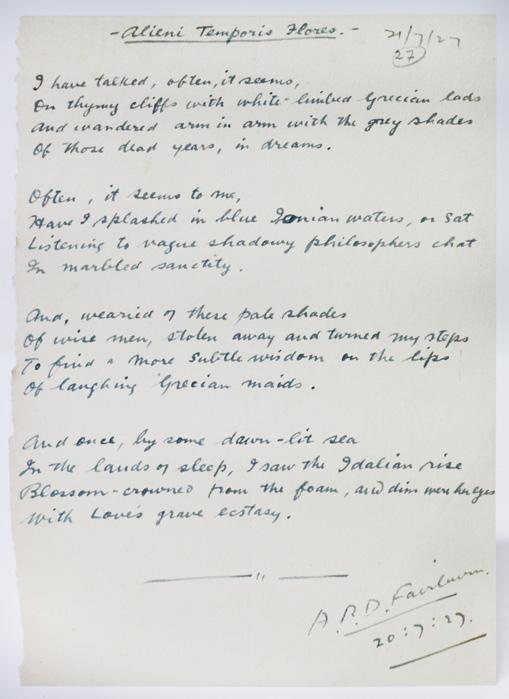 - Alieni Temporis Flores. -
21/7/27
27
I have talked, often, it seems,
On thymy cliffs with white-limbed Grecian lads
And wandered arm in arm with the grey shades
Of those dead years, in dreams.
Often, it seems to me,
Have I splashed in blue Ionian waters, or sat
Listening to vague shadowy philosophers chat
In marbled sanctity.
And, wearied of these pale shades
Of wise men, stolen away and turned my steps
To find a more subtle wisdom on the lips
Of laughing Grecian maids.
And once, by some dawn-lit sea
In the lands of sleep, I saw the Idalian rise
Blossom-crowned from the foam, and dim were her eyes
With Love's grave ecstasy.
A. R. D. Fairburn.
20:7:27.